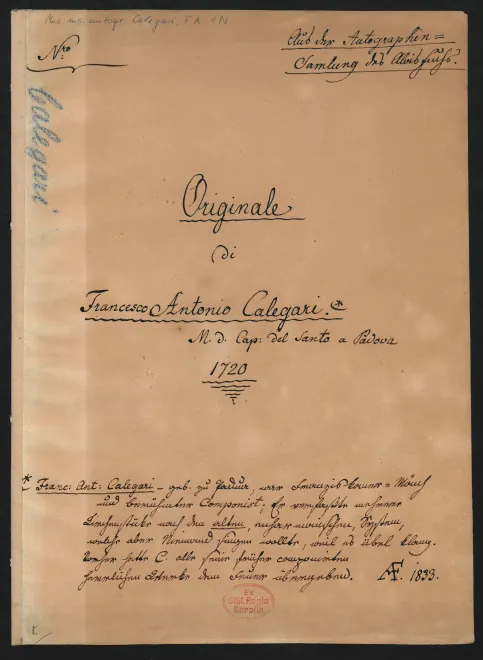 Mus. ms. autogr. Calegari, F. A. 1 N
Nro
Aus der Autographen=
Samlung des Alois Fuchs.
Calegari
Originale
di
Francesco Antonio Calegari.*
M. d. Cap: del Santo a Padova
1720
* Franc: Ant: Calegari – geb. zu Padua, war Franziskaner=Mönch
und berühmter Componist. Er verfaßte mehrere
Kirchenstücke nach dem alten, enharmonischen System,
welche aber Niemand singen wollte, weil es übel klang.
Vorher hatte C. alle seine früher componirten
herrlichen Werke dem Feuer übergeben. AF. 1833.
Ex
Biblioth. Regia
Berolin.